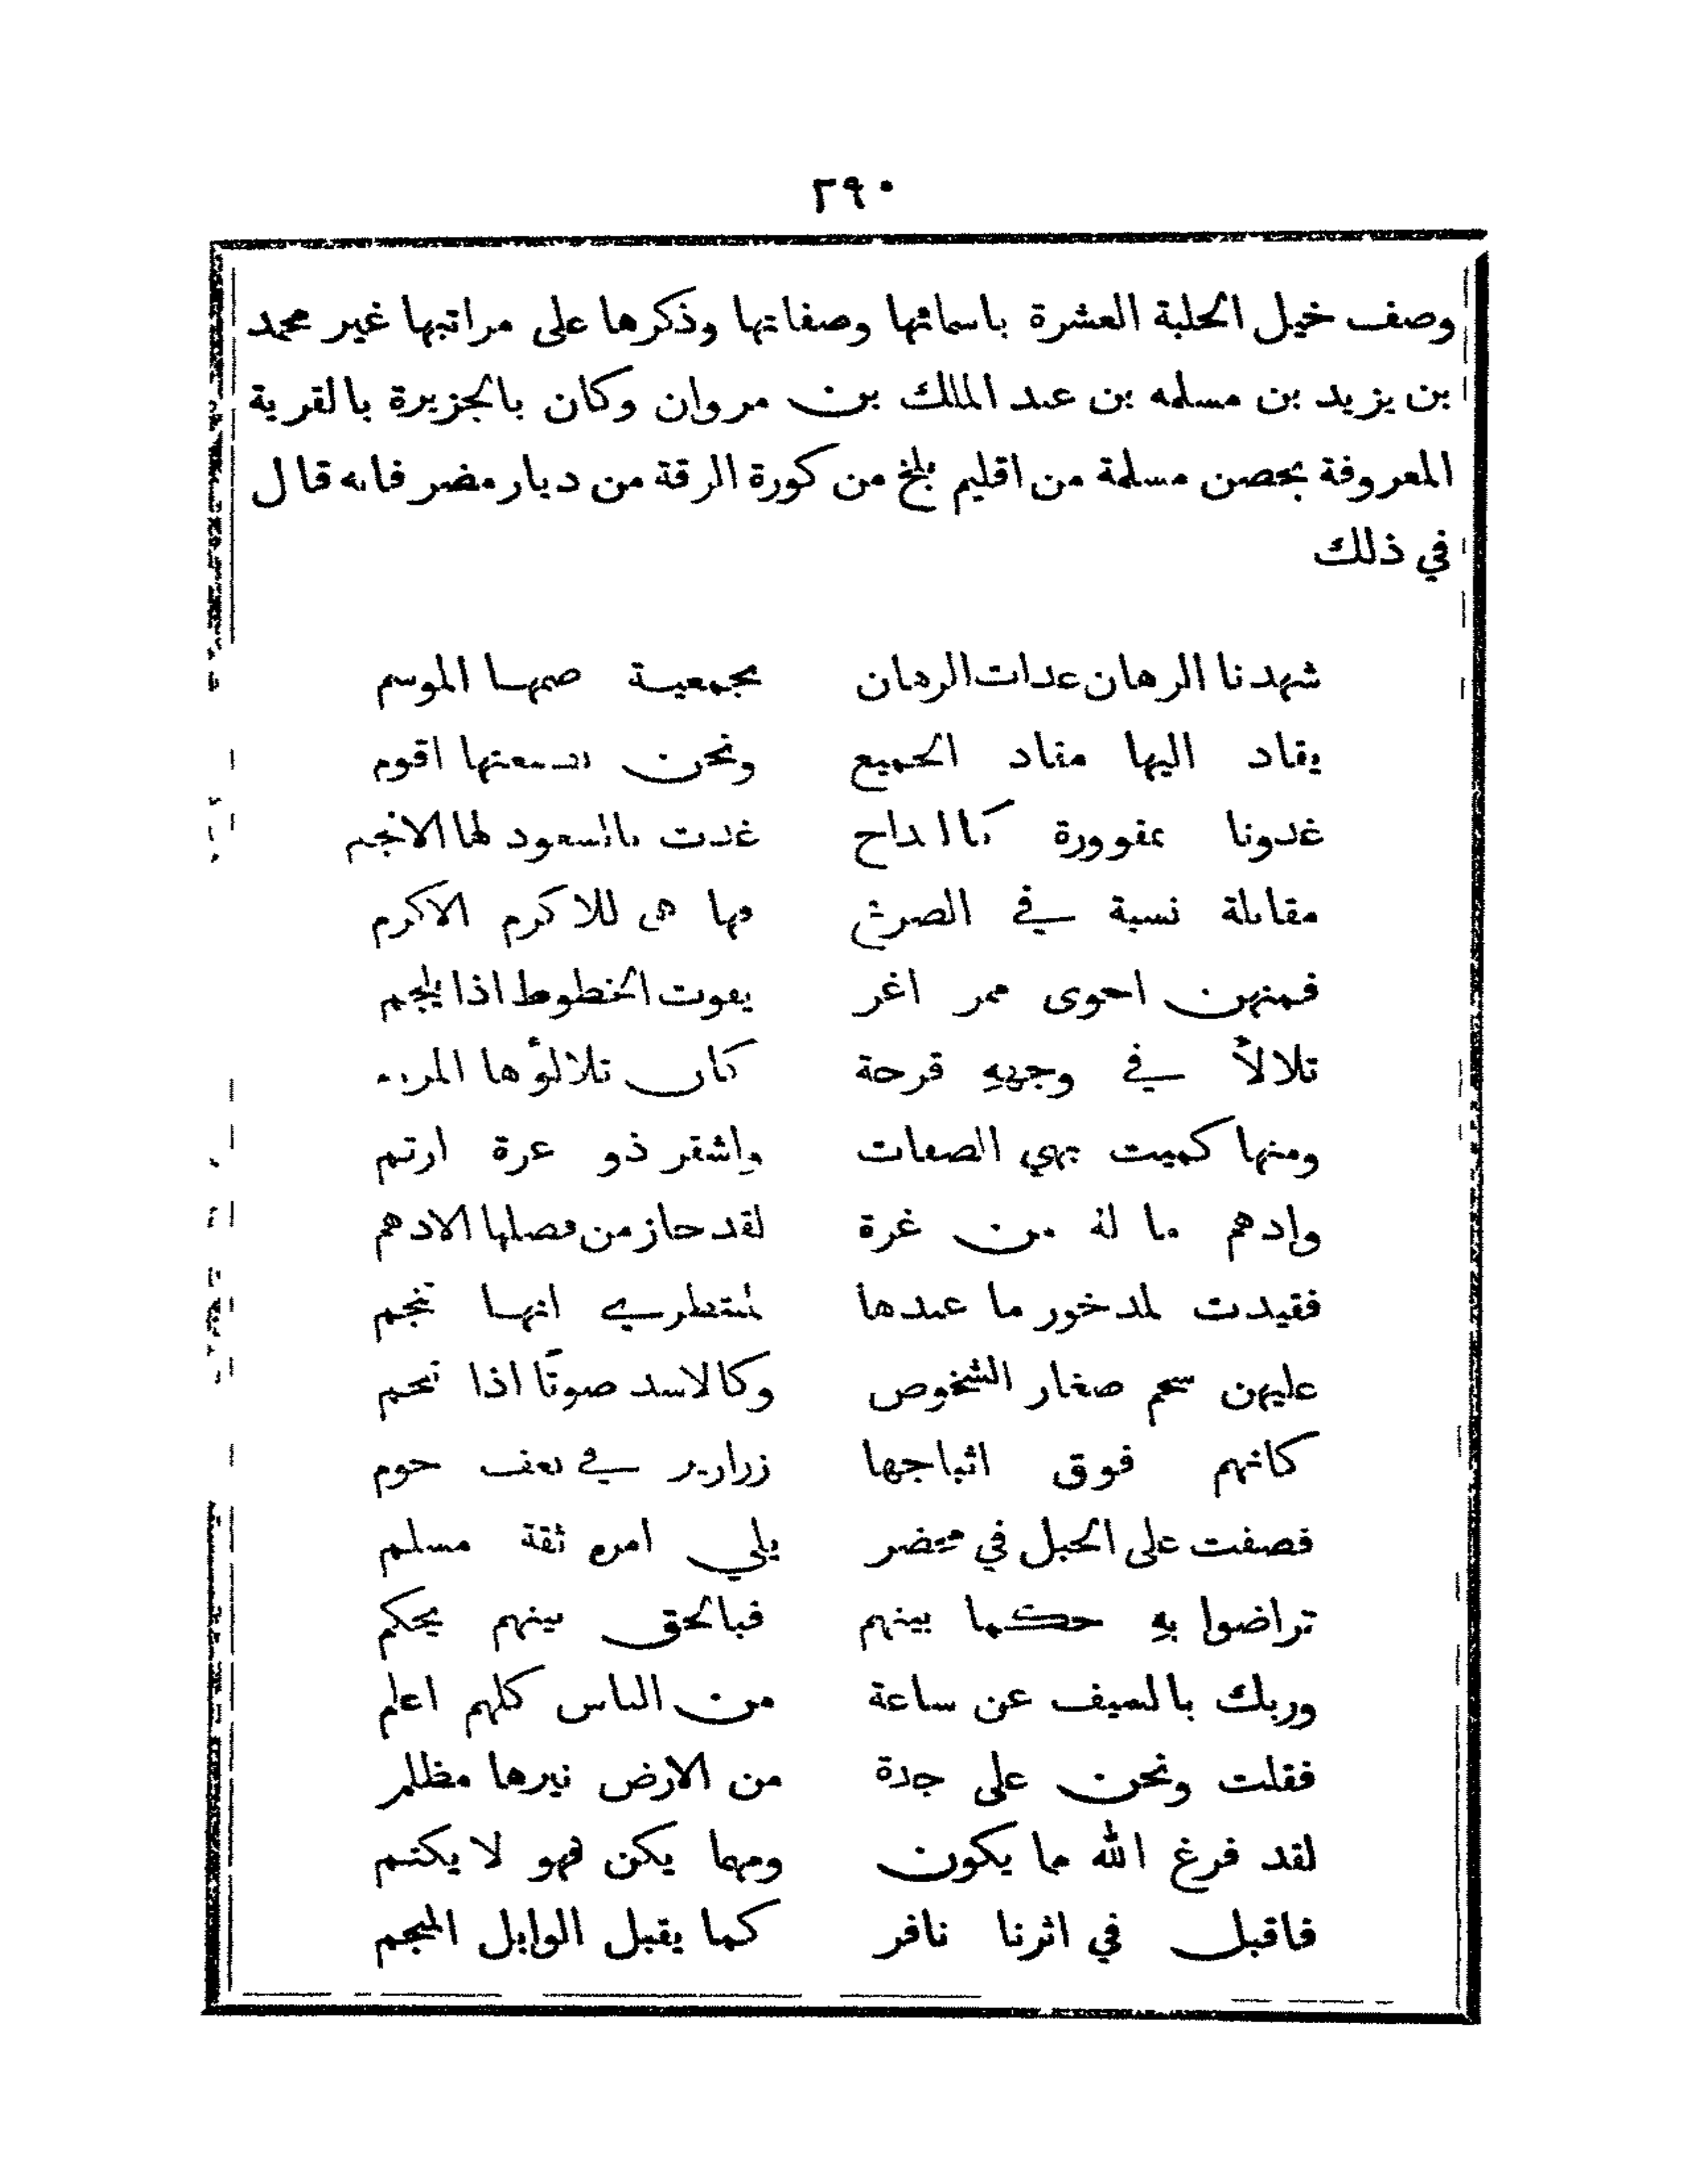 ٢٩٠
وصف خيل الحلبة العشرة باسمائها وصفاتها وذكرها على مراتبها غير محمد
بن يزيد بن مسلمه بن عبد الملك بن مروان وكان بالجزيرة بالقرية
المعروفة بحصن مسلمة من اقليم بلخ من كورة الرقة من ديار مضر فانه قال
في ذلك
شهدنا الرهان غداة الرهان بمجمعية ضمها الموسم
يقاد اليها مقاد الجميع ونحن اقوم
غدونا بمقوورة كالقداح غدت بالسعود لها الانجم
مقابلة نسبة في الصريح هي للاكرم الاكرم
فمنهن احوى ممر اغر يفوت الخطوط اذا يلجم
تلالأ في وجهه قرحة كان تلالؤها المرزم
ومنها كميت بهي الصفات واشقر ذو غرة ارثم
وادهم ما له من غرة لقد حاز من فضلها الادهم
فقيدت لمدخور ما عندها لمنتظري انها تنجم
عليهن سحم صغار الشخوص وكالاسد صوتًا اذا
كانهم فوق اثباجها زرازير في حوم
فصفت على الحبل في محضر يلي امره ثقة مسلم
تراضوا به حكما بينهم فبالحق بينهم يحكم
وربك بالسيف عن ساعة من الناس كلهم اعلم
فقلت ونحن على جدة من الارض نيرها مظلم
لقد فرغ الله ما يكون ومهما يكن فهو لا يكتم
فاقبل في اثرنا نافر كما يقبل الوابل المثجم